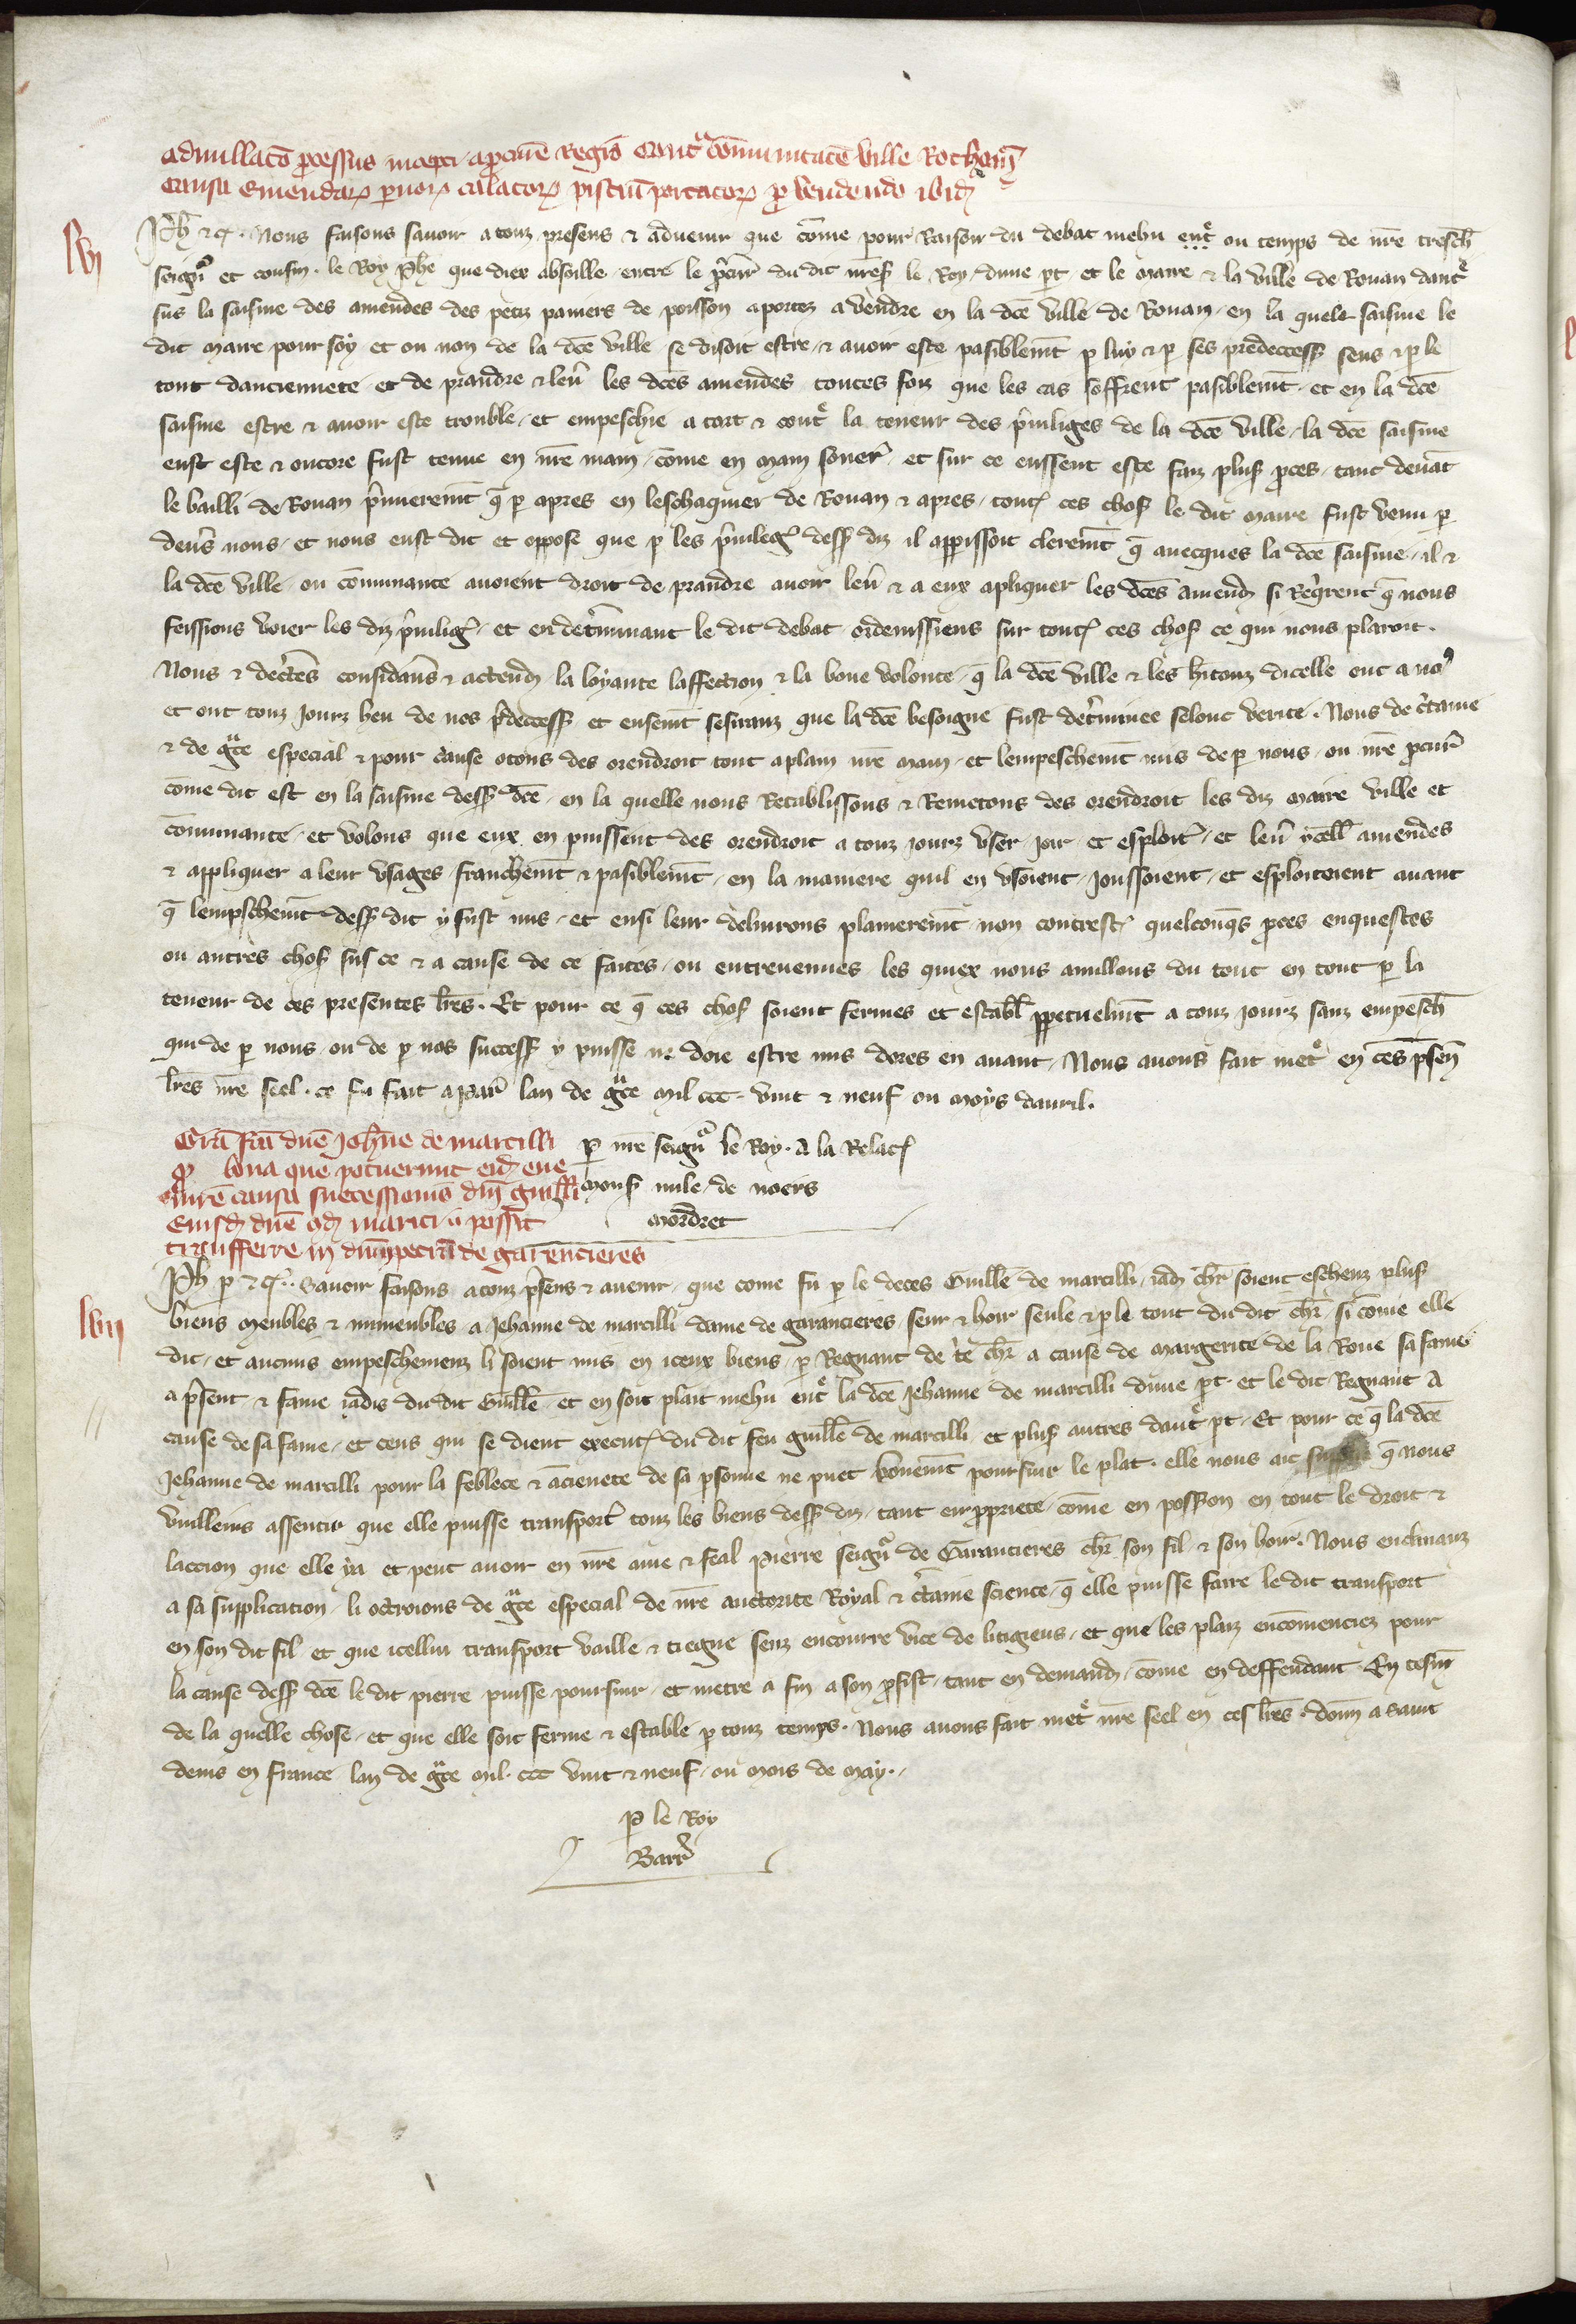 Adnullacō p̄cessus incepti a p̄curē Regis cont̃ cōmunitatē ville Rothom̄
causa emendaꝝ paruoꝝ calatoꝝ pisciū portatoꝝ p̄ vendendo ibid̄
lvi
Ph̄ ⁊c̄. Nous faisons sauoir a touz presens ⁊ aduenir que cōme pour raison du debat mehu ent̃ ou temps de nr̄e tresch̄
seign̄r et cousin. le Roy Ph̄e que diex absoille entre le p̄cur̄ du dit nr̄es le Roy dune pt et le Maire ⁊ la ville de Rouan daut̃
sus la saisine des amendes des petiz paniers de poisson aportez a vendre en la dc̄e ville de Rouan en la quele saisine le
dit Maire pour soy et ou non de la dc̄e ville se disoit estre ⁊ auoir este pasiblem̄t p luy ⁊ p ses predecess̄ seus ⁊ p le
tout danciennete et de prandre ⁊ leu̅ les dc̄es amendes toutes foiz que les cas soffrent pasiblem̄t et en la dc̄e
saisine estre ⁊ auoir este trouble et empeschie a tort ⁊ cont̃ la teneur des p̄uiliges de la dc̄e ville la dc̄e saisine
eust este ⁊ oncore fust tenue en nr̄e main cōme en main souer̄ et sur ce eussent este faiz plus̄ p̄ces tant deuāt
le bailli de Rouan p̄mierem̄t q̄ p apres en leschaquier de Rouan ⁊ apres tout̄ ces chos̄ le dit maire fust venu p
deu̅s nous et nous eust dit et oppose que p les p̄uileḡ dess̄ diz il apparissoit cleremt̄ q̄ auecques la dc̄e saisine il ⁊
la dc̄e ville ou cōmunaute auoient droit de prandre auoir leu̅ ⁊ a eux apliquer les dc̄es amend̄ si req̄rent q̄ nous
feissions voier les diz p̄uilig̃ et en det̄minant le dit debat ordenissiens sur tout̄ ces chos̄ ce qui nous plairoit.
Nous ⁊ dec̄tes considāns ⁊ actend̄ la loyaute laffection ⁊ la bone volonte q̄ la dc̄e ville ⁊ les h̄itanz dicelle ont a no9
et ont touz jours heu de nos p̄decess̄ et ensemt̄ desiranz que la dc̄e besoigne fust det̄minee selonc verite. Nous de c̄taine
⁊ de gr̄ce especial ⁊ pour cause otons des orendroit tout aplain nr̄e main et lempeschem̄t mis de p nous ou nr̄e p̄cur̄
cōme dit est en la saisine dess̄ dc̄e en la quelle nous Restablissons ⁊ Remetons des orendroit les diz maire ville et
cōmunaute et volons que eux en puissent des orendroit a touz jours vser joir et esploit̃ et leu̅ ycell̄ amendes
⁊ appliquer a leur vsages franchem̄t ⁊ pasiblem̄t en la maniere quil en vsoient joussoient et esploitoient auant
q̄ lempschem̄t dess̄ dit y fust mis et ensi leur deliurons plainerem̄t non contrest̃ quelconq̄s p̄ces enquestes
ou autres chos̄ sus ce ⁊ a cause de ce faites ou entreuenues les quiex nous anullons du tout en tout p la
teneur de ces presentes lr̄es. Et pour ce q̄ ces chos̄ soient fermes et establ̄ ppetuelm̄t a touz jours sanz empesch̄
qui de p nous ou de p nos success̄ y puisse ne doie estre mis dores en auant Nous auons fait met̃ en ces p̄sen̄
lr̄es nr̄e seel. ce fu fait a Par̄ lan de gr̄ce mil ccc. vint ⁊ neuf ou moys dauril.
p nr̄e seign̄r le Roy. A la Relac̄
mons̄ mile de noers
Mordret
Grā fc̄a dn̄e Joh̄ne de marcilli
bona que potuerunt eid̄ eue
nire causa successionis dn̄i guill̄i
eiusd̄ dn̄e q̄d̄ mariti
transfferre in dn̄m petrū de garencieres
lvii
Ph̄ p ⁊c̄. Sauoir faisons a touz p̄sens ⁊ auenir que cōme fu p le deces Guill̄e de marcilli iad̄ ch̄r soient escheuz plus̄
biens meubles ⁊ inmeubles a Jehanne de marcilli dame de garancieres seur ⁊ hoir seule ⁊ p le tout du dit ch̄r si cōme elle
dit et aucuns empeschemenz li soient mis en iceux biens p Regnaut de c̄e ch̄r a cause de margerite de la Roue sa fame
a p̄sent ⁊ fame iadis du dit Guill̄e et en soit plait mehu ent̃ la dc̄e Jehanne de marcilli dune pt et le dit Regnaut a
cause de sa fame et ceus qui se dient execut̃ du dit feu guill̄e de marcilli et plus̄ autres daut̃ pt Et pour ce q̄ la dc̄e
Jehanne de marcilli pour la feblece ⁊ ācienete de sa psonne ne puet bonem̄t poursuir le plat. elle nous ait q̄ nous
vuilleins assentir que elle puisse transport̃ touz les biens dess̄ diz tant en ppriete cōme en poss̄ion en tout le droit ⁊
laccion que elle ya et peut auoir en nr̄e ame ⁊ feal pierre seign̄r de Garancieres ch̄r son fil ⁊ son hoir. Nous enclinanz
a sa supplication li octroions de gr̄ce especial de nr̄e auctorite Royal ⁊ c̄taine science q̄ elle puisse faire le dit transport
en son dit fil et que icellui transport vaille ⁊ tiegne senz encourre vice de litigieus et que les plaiz encōmenciez pour
la cause dess̄ dc̄e le dit pierre puisse poursuir et metre a fin a son p̄fist tant en demand̄ cōme en deffendant. En tesm̄
de la quelle chose et que elle soit ferme ⁊ estable p touz temps. Nous auons fait met̃ nr̄e seel en ces lr̄es. don̄n a saint
denis en france lan de gr̄ce mil. ccc vint ⁊ neuf ou mois de may.
p le Roy
Barr̄